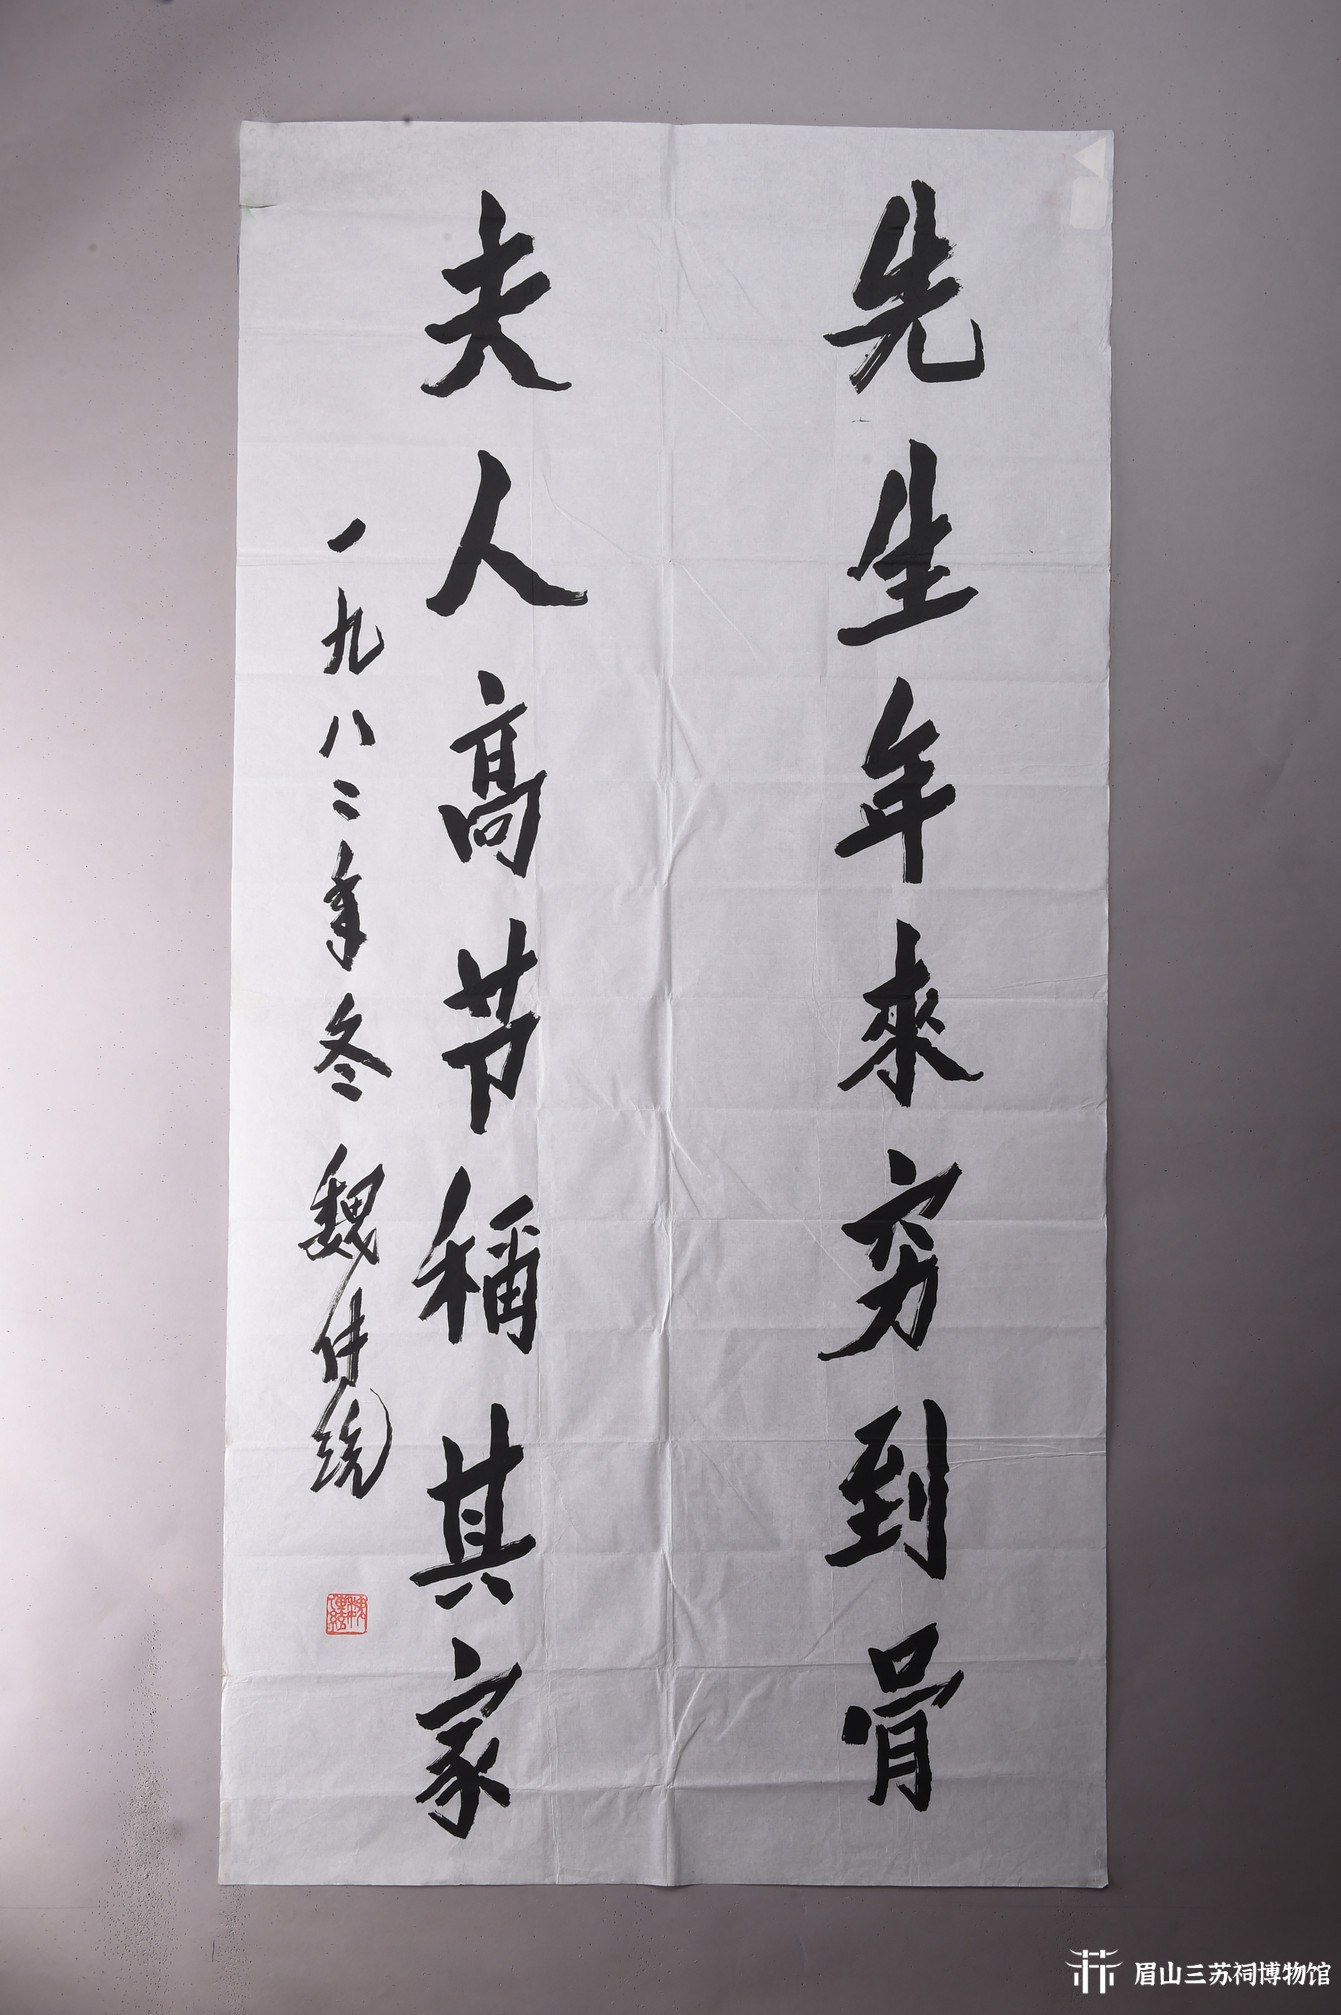 先生年来穷到骨
夫人高节称其家
一九八二年冬 魏传统
魏传统
眉山三苏祠博物馆